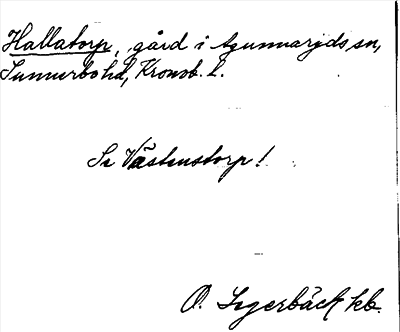 Hallatorp, gård i Agunnaryds sn,
Sunnerbo hd, Kronob. l.
Se Västenstorp!
O. Segerbäck kb.